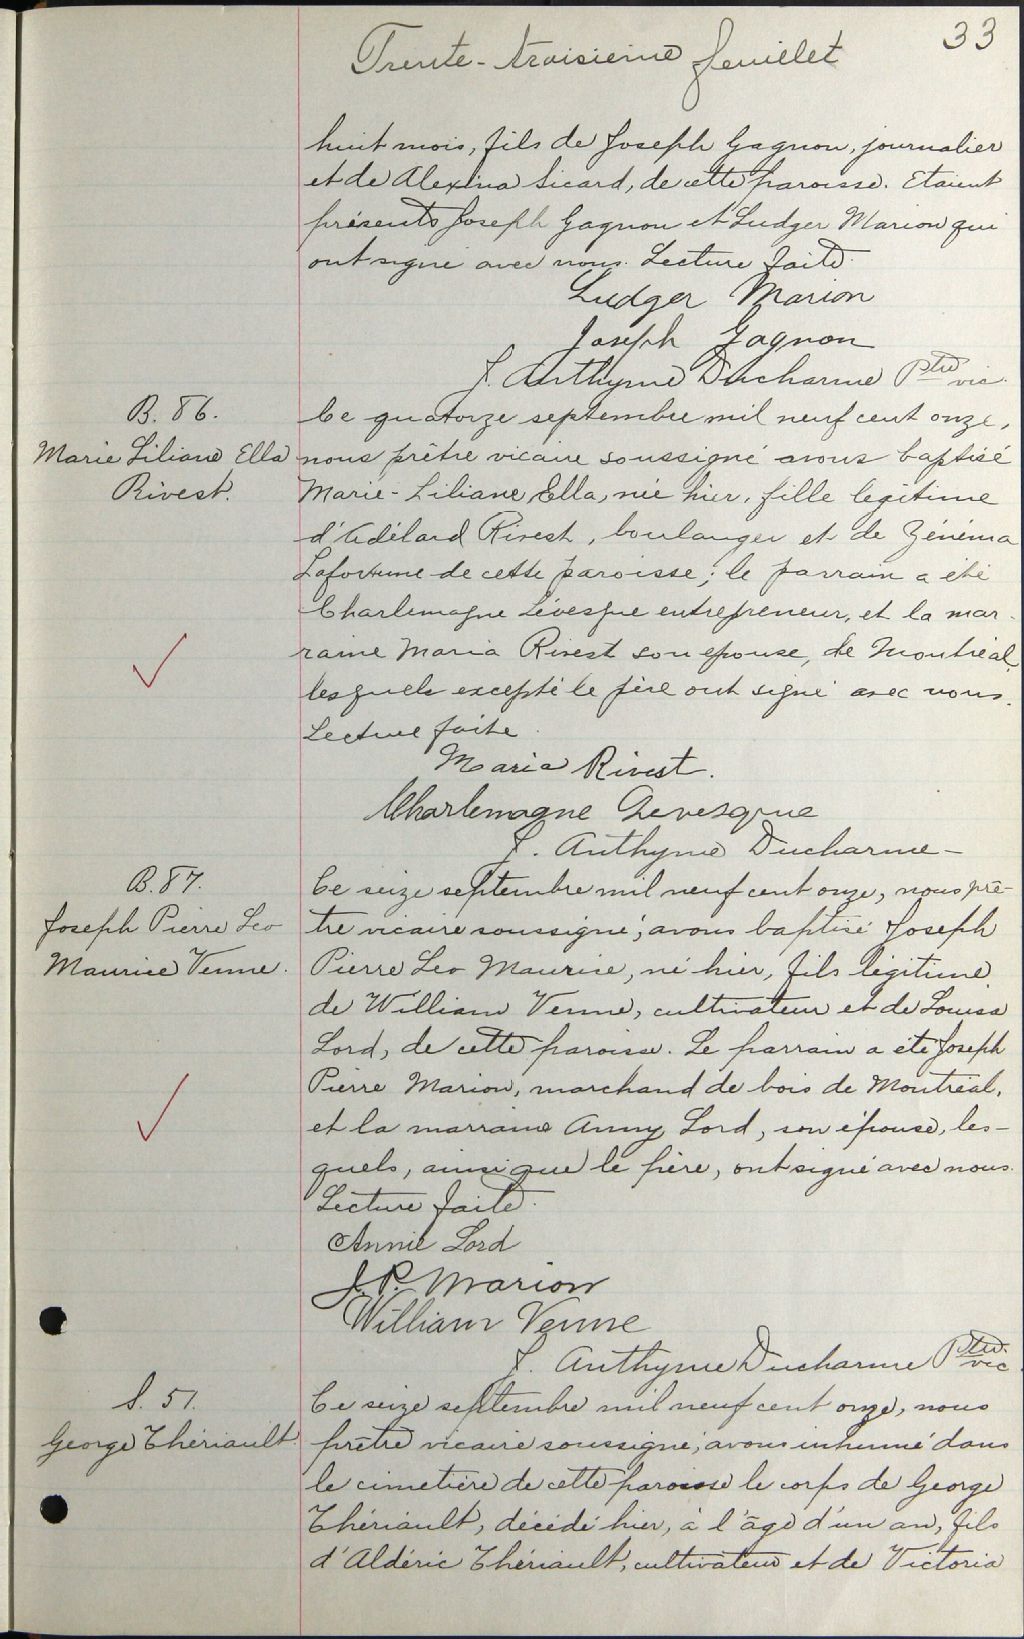 33
Trente-troisième feuillet
huit mois, fils de Joseph Gagnon, journalier
et de Alexina Sicard, de cette paroisse. Etaient
présents Joseph Gagnon et Ludger Marion qui
ont signé avec nous. Lecture faite.
Ludger Marion
Joseph Gagnon
J. Anthyme Ducharme Ptre vic.
B. 86.
Marie Liliane Ella
Rivest.
Ce quatorze septembre mil neuf cent onze,
nous prêtre vicaire soussigné avons baptisé
Marie-Liliane Ella, née hier, fille légitime
d'Adélard Rivest, boulanger et de Zénéma
Lafortune de cette paroisse; le parrain a été
Charlemagne Lévesque entrepreneur, et la mar-
raine Maria Rivest son épouse, de Montréal,
lesquels excepté le père ont signé avec nous.
Lecture faite.
Maria Rivest.
Charlemagne Levesque
J. Anthyme Ducharme-
B. 87.
Joseph Pierre Leo
Maurice Venne.
Ce seize septembre mil neuf cent onze, nous prê-
tre vicaire soussigné, avons baptisé Joseph
Pierre Leo Maurice, né hier, fils légitime
de William Venne, cultivateur et de Louisa
Lord, de cette paroisse. Le parrain a été Joseph
Pierre Marion, marchand de bois de Montréal,
et la marraine Anny Lord, son épouse, les-
quels, ainsi que le père, ont signé avec nous.
Lecture faite.
Annie Lord
J. P. Marion
William Venne
J. Anthyme Ducharme Ptre vic.
S. 51.
George Thériault.
Ce seize septembre mil neuf cent onze, nous
prêtre vicaire soussigné, avons inhumé dans
le cimetière de cette paroisse le corps de George
Thériault, décédé hier, à l'âge d'un an, fils
d'Aldéric Thériault, cultivateur et de Victoria